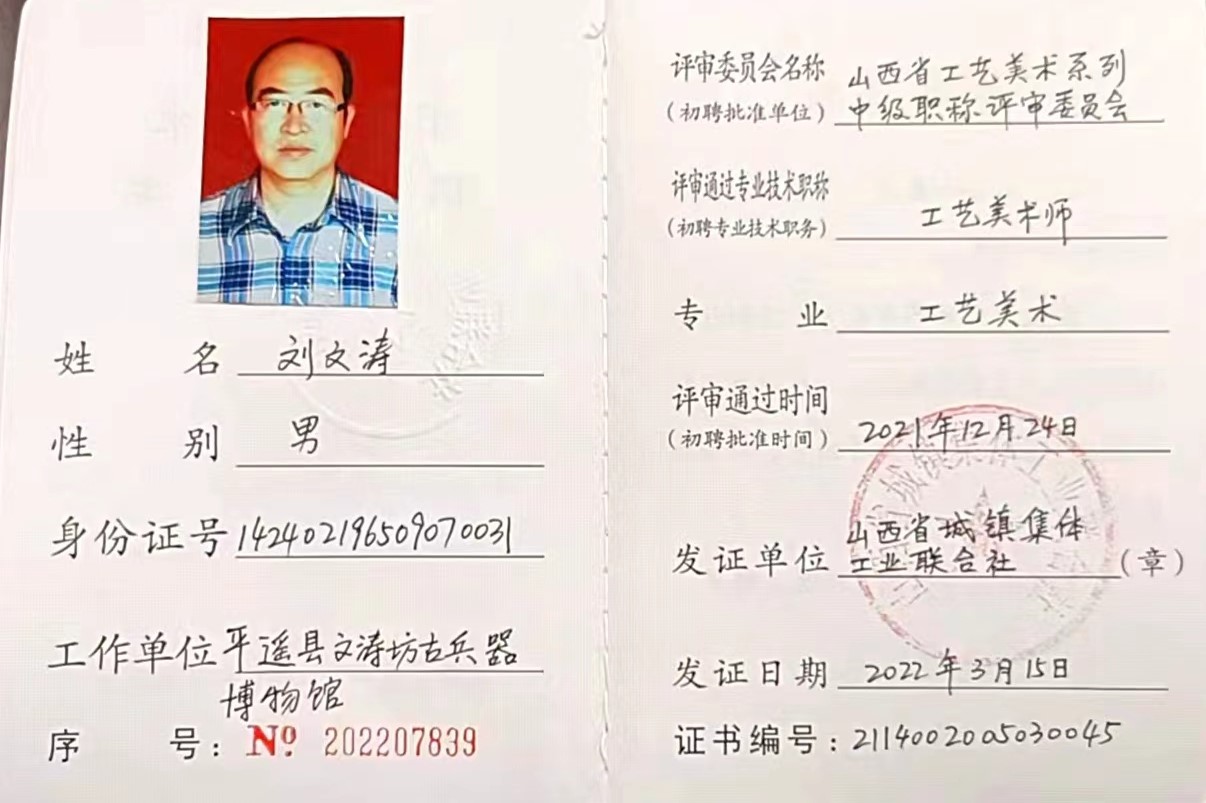 姓 名 刘文涛
性 别 男
身份证号 142402196509070031
工作单位 平遥县文涛坊古兵器
博物馆
序 号：№ 202207839
评审委员会名称 山西省工艺美术系列
（初聘批准单位） 中级职称评审委员会
评审通过专业技术职称
（初聘专业技术职务） 工艺美术师
专 业 工艺美术
评审通过时间
（初聘批准时间） 2021年12月24日
发证单位 山西省城镇集体
工业联合社 （章）
发证日期 2022年3月15日
证书编号：2114002005030045